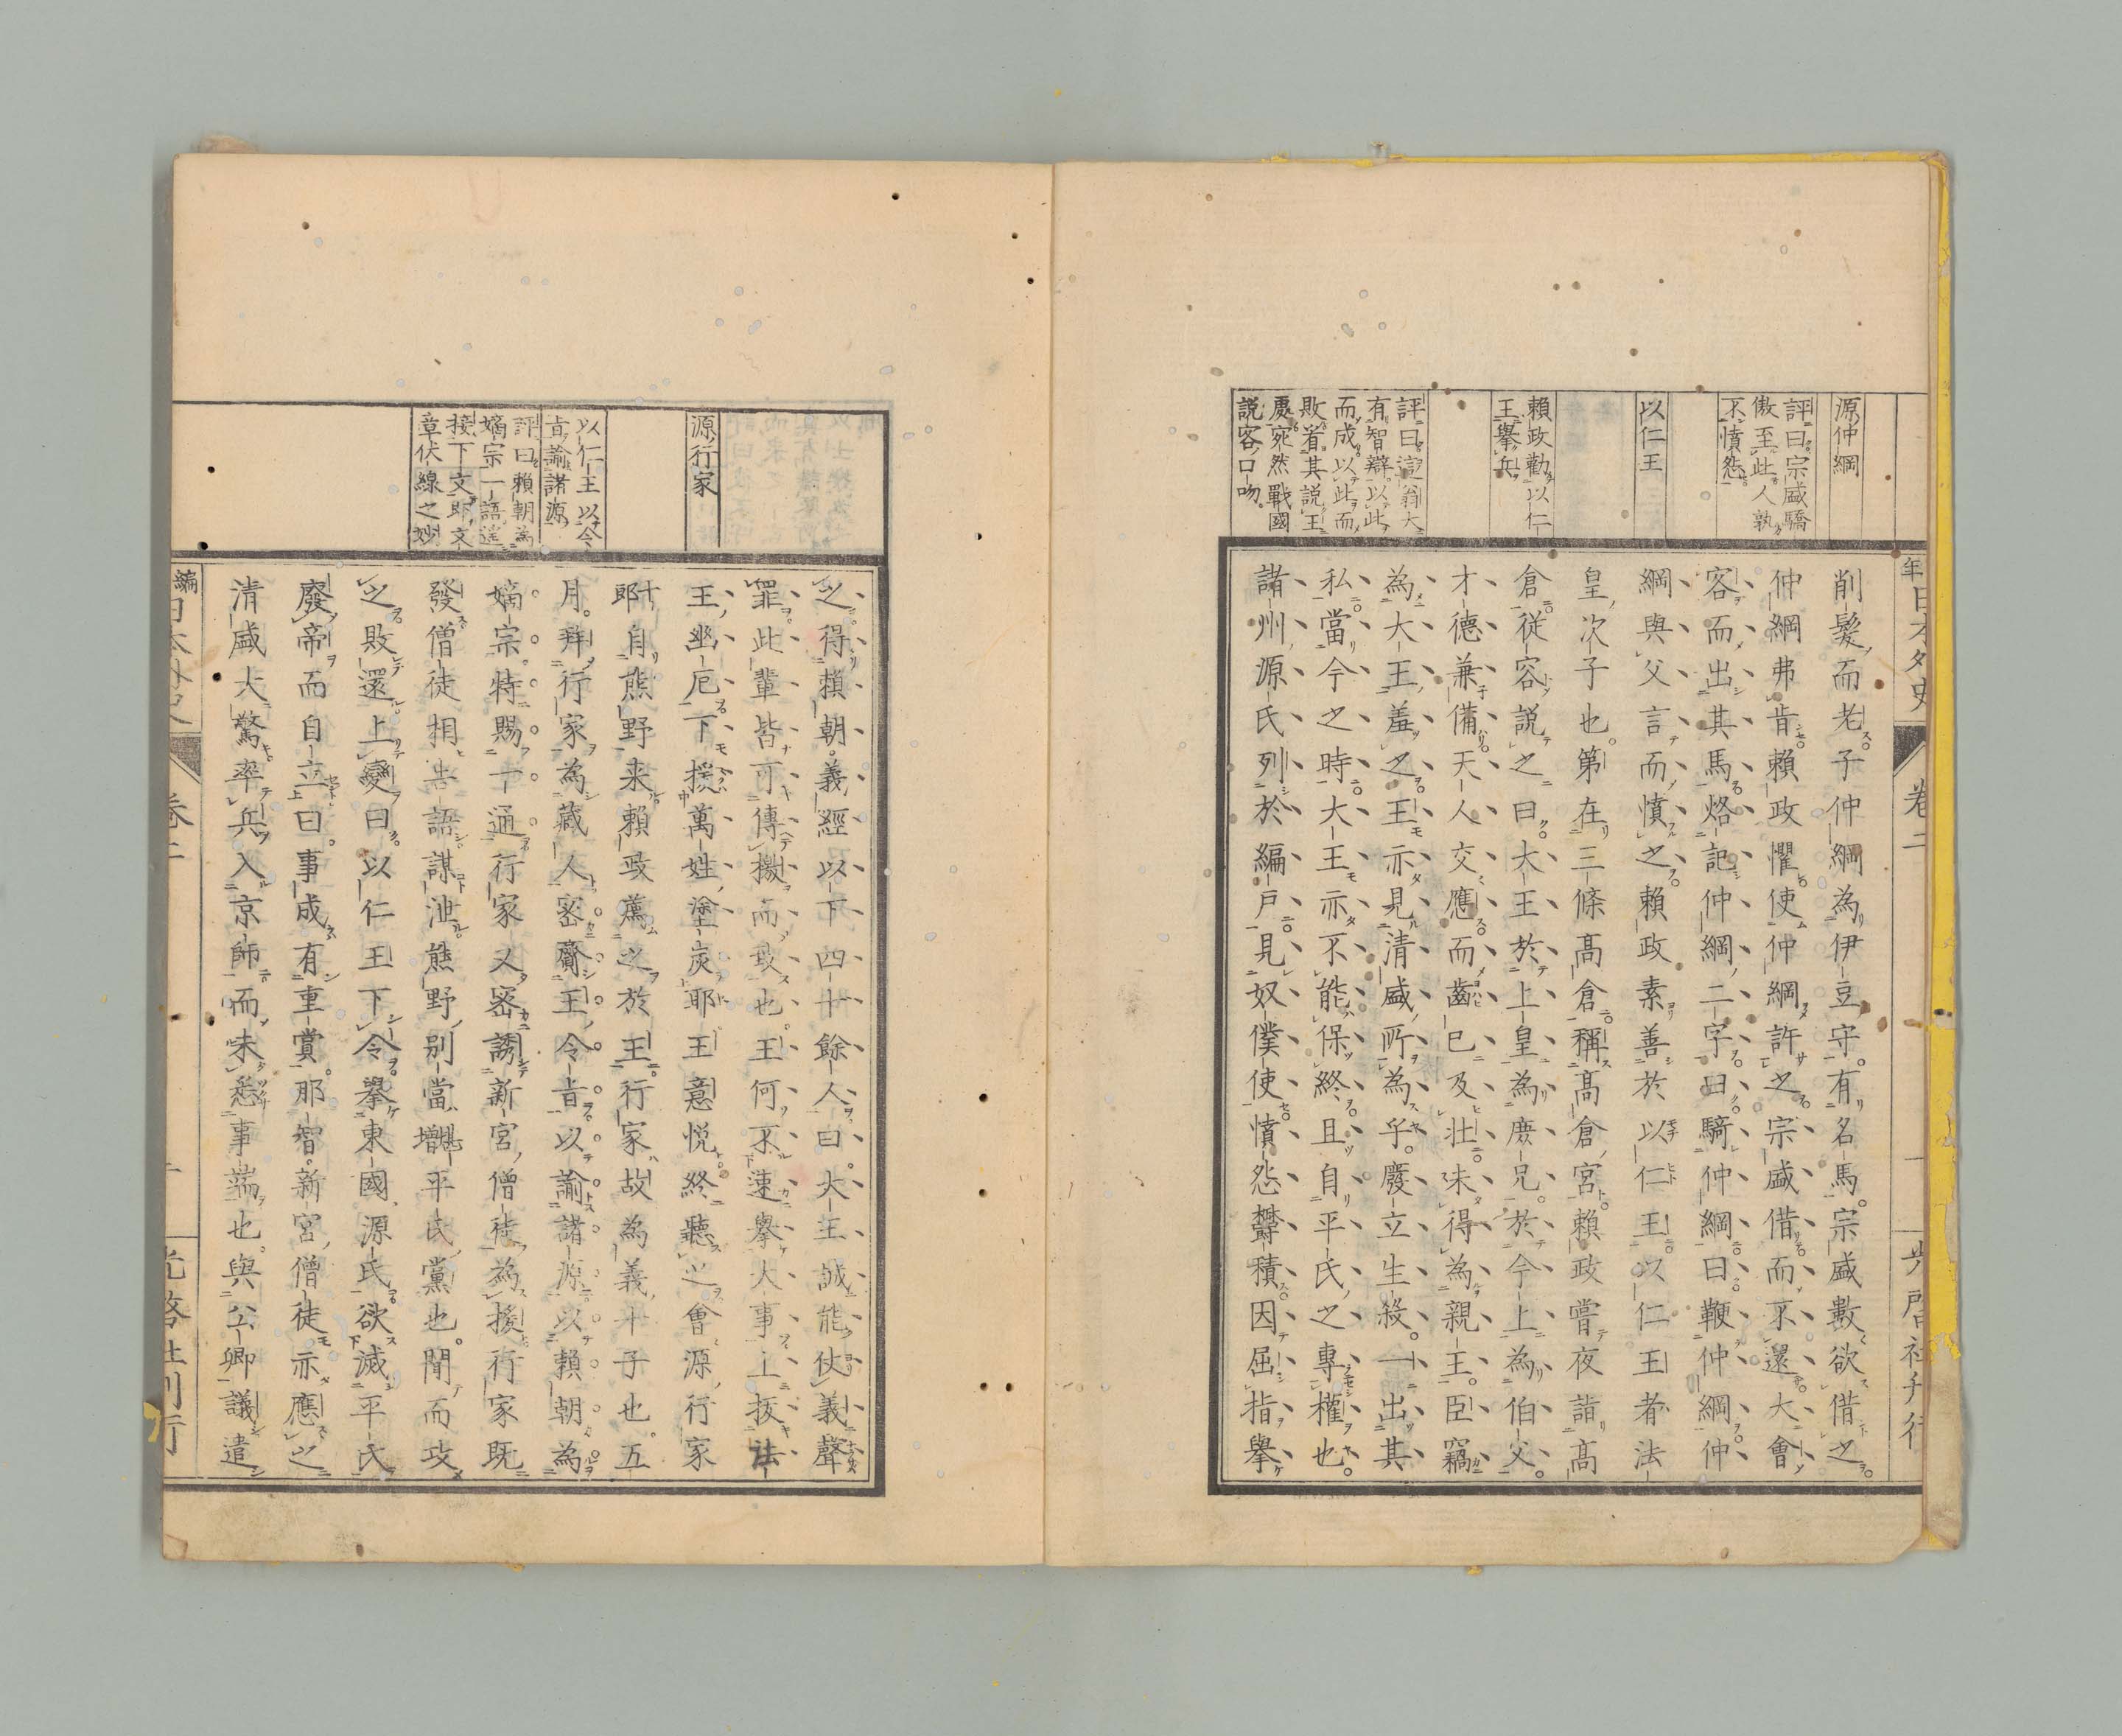 源仲綱
評曰宗盛驕
傲至此人孰
不憤怨
以仁王
頼政勸以仁
王擧兵
評曰這翁大
有智辯以此
而成以此而
敗着其説王
處宛然戰國
説客口吻
卷二
削髮而老子仲綱為伊豆守有名馬宗盛數欲借之
仲綱弗肯賴政懼使仲綱許之宗盛借而不還大會
客而出其馬烙記仲綱二字曰騎仲綱曰鞭仲綱仲
綱與父言而憤之賴政素善於以仁王以仁王者法
皇次子也第在三條髙倉稱髙倉宮賴政嘗夜詣髙
倉從容説之曰大王於上皇為庶兄於今上為伯父
才德兼備天人交應而齒已及壮未得為親王臣竊
為大王羞之王亦見清盛所為乎廢立生殺一出其
私當今之時大王亦不能保終且自平氏之專權也
諸州源氏列於編戸見奴僕使憤怨欝積因屈指擧
源行家
以仁王以令
㫖諭諸源
評曰賴朝為
嫡宗一語遙
接下文即文
章伏線之妙
之得賴朝義經以下四十餘人曰大王誠能仗義聲
罪此輩皆可傳檄而致也王何不速擧大事上拔法
王幽厄下援萬姓塗炭耶王意悦終聽之會源行家
十郎自熊野来賴政薦之於王行家故為義十子也五
月拜行家為藏人密齎王令㫖以諭諸源以賴朝為
嫡宗特賜一通行家又密誘新宮僧徒為援行家既
發僧徒相告語謀泄熊野別當湛增平氏黨也聞而攻
之敗還上變曰以仁王下令擧東國源氏欲滅平氏
廢帝而自立曰事成有重賞那智新宮僧徒亦應之
清盛大驚率兵入京師而未悉事端也與公卿議遣